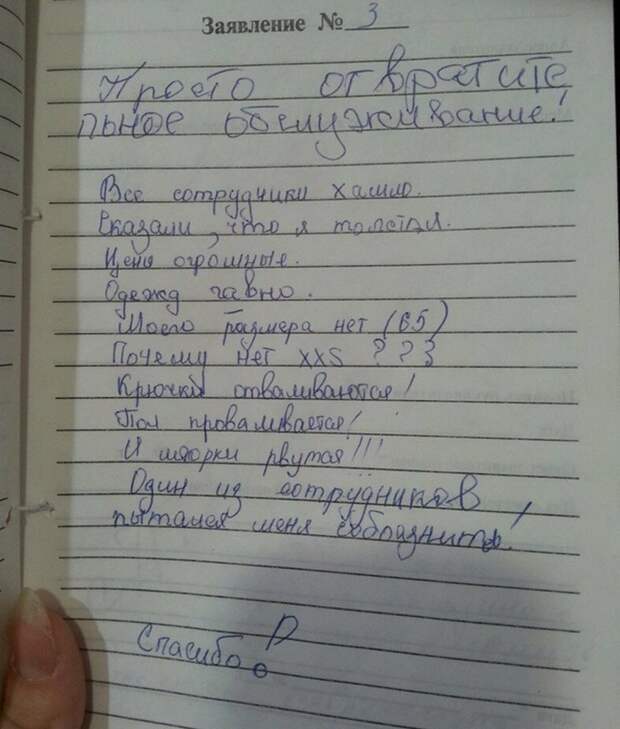 Заявление № 3
Просто отвратите
льное обслуживание!
Все сотрудники хамло.
Сказали, что я толстая.
Цены огромные.
Одежд гавно.
Моего размера нет (65)
Почему нет XXS ???
Крючки отваливаются!
Пол проваливается!
И шторки рвутся!!!
Один из сотрудников,
пытался меня соблазнить!
Спасибо!